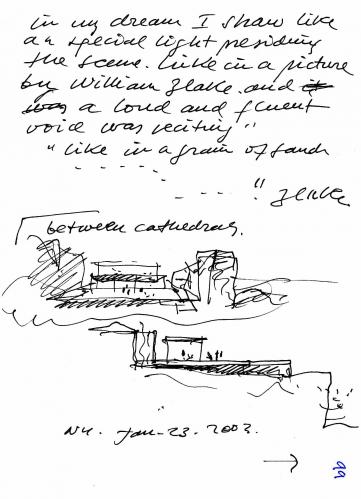 in my dream I shaw like
an special light presiding
the scene. Like in a picture
by William Blake. and it
was a loud and fluent
void was reciting"
"like in a grain of sand
. - - - - - -
." Blake
between cathedrals.
NY. Jan-23-2003.
→
99